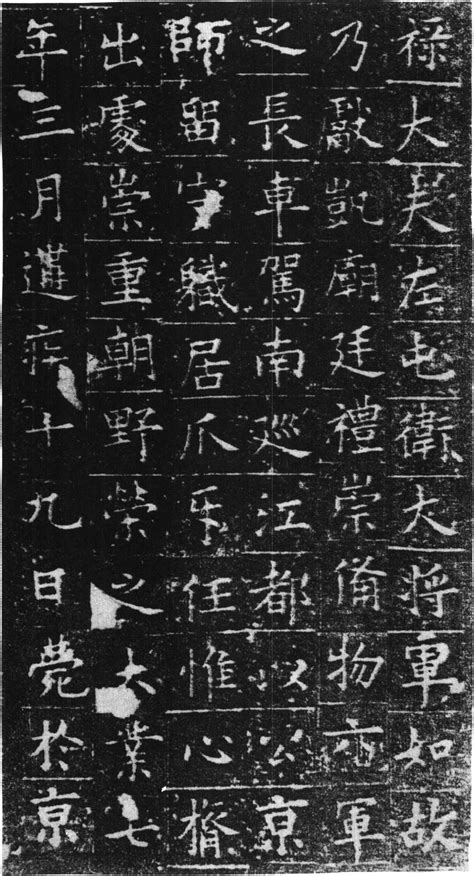 祿大夫左屯衛大將軍如故
乃獻凱廟廷禮崇備物亦軍
之長車駕南巡江都以公京
師留守職居爪牙任惟心膂
出處崇重朝野榮之大業七
年三月遘疾十九日薨於京